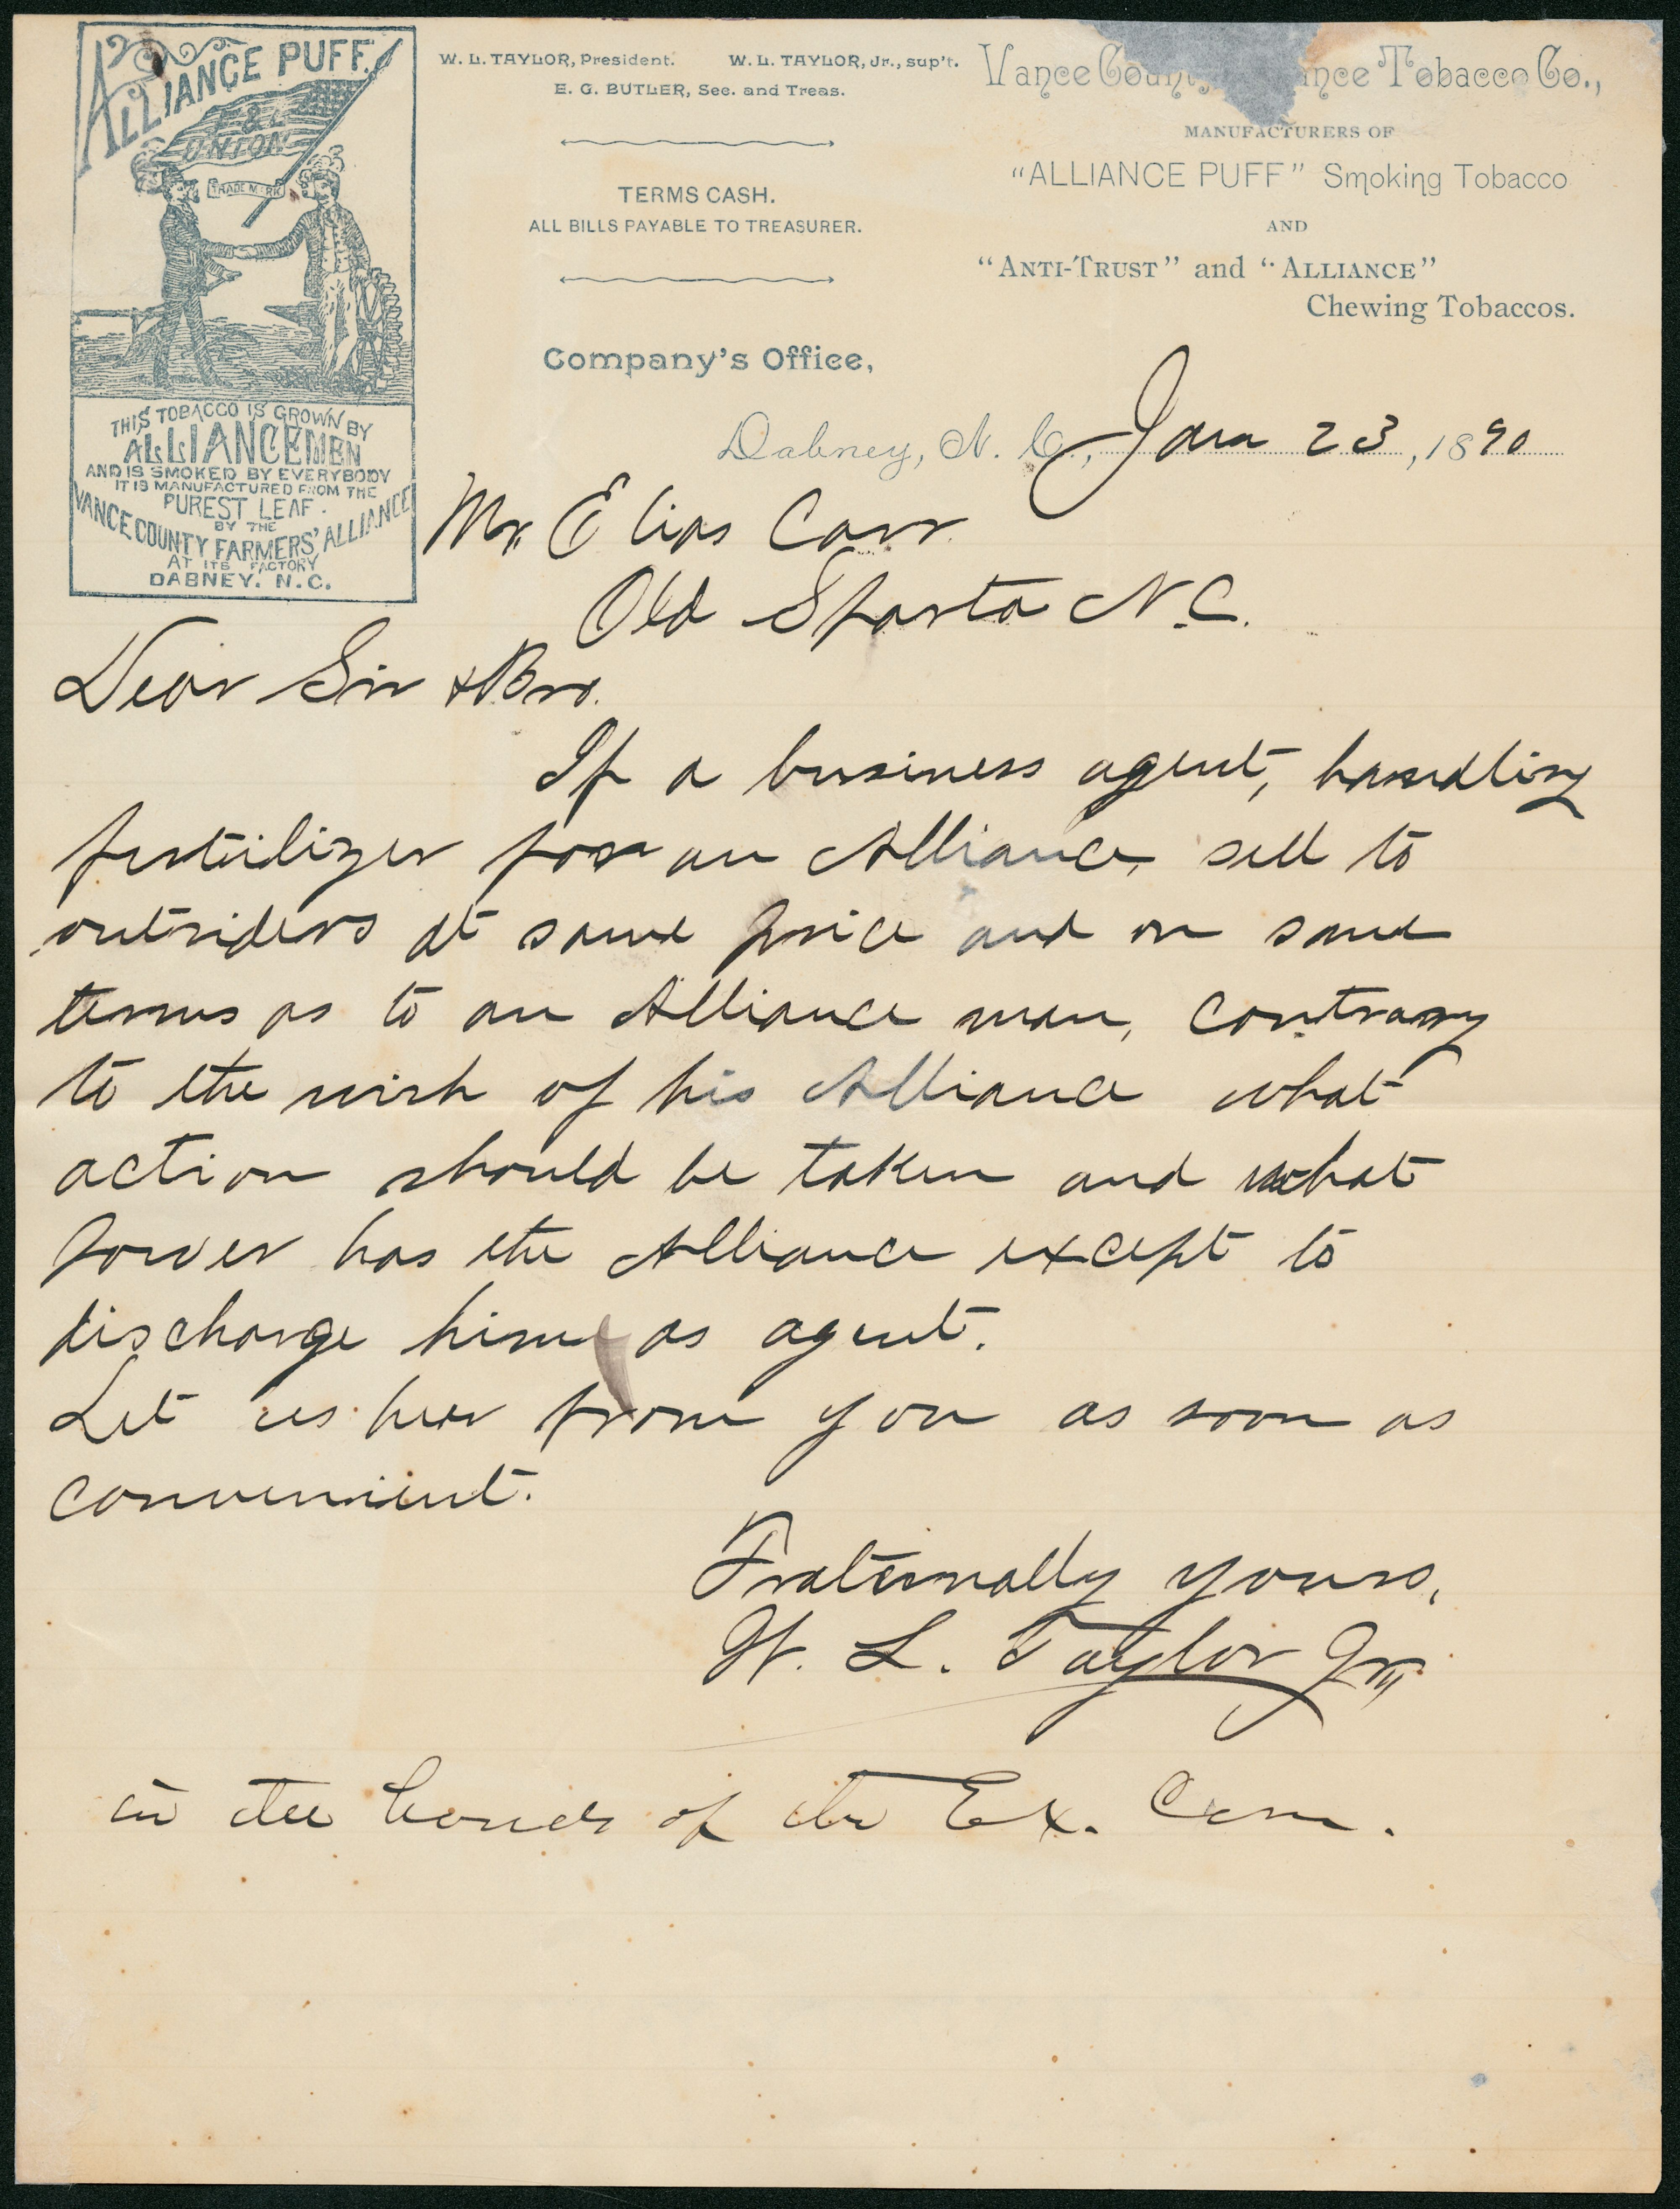 ALLIANCE PUFF.
F & L
UNION
TRADE MARK
THIS TOBACCO IS GROWN BY
ALLIANCEMEN
AND IS SMOKED BY EVERYBODY
IT IS MANUFACTURED FROM THE
PUREST LEAF.
BY THE
VANCE COUNTY FARMERS' ALLIANCE
AT ITS FACTORY
DABNEY. N.C.
W. L. TAYLOR, President. W. L. TAYLOR, Jr., sup't.
E. G. BUTLER, Sec. and Treas.
TERMS CASH.
ALL BILLS PAYABLE TO TREASURER.
Vance County ance Tobacco Co.,
MANUFACTURERS OF
"ALLIANCE PUFF" Smoking Tobacco
AND
"ANTI-TRUST" and "ALLIANCE"
Chewing Tobaccos.
Company's Office,
Dabney, N. C., Jan 23, 1890
Mr. Elias Carr
Old Sparta N.C.
Dear Sir & Bro.
If a business agent, handling
fertilizer for an Alliance, sell to
outsiders at same price and on same
terms as to an Alliance man, contrary
to the wish of his Alliance what
action should be taken and what
power has the Alliance except to
discharge him as agent.
Let us hear from you as soon as
convenient.
Fraternally yours,
W. L. Taylor Jr.
in the hands of the Ex. Com.